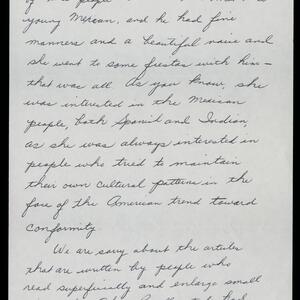 young Mexican, and he had fine
manners and a beautiful voice and
she went to some fiestas with him—
that was all. As you know, she
was interested in the Mexican
people, both Spanish and Indian,
as she was always interested in
people who tried to maintain
their own cultural patterns in the
face of the American trend toward
conformity.
We are sorry about the articles
that are written by people who
read superficially and enlarge small